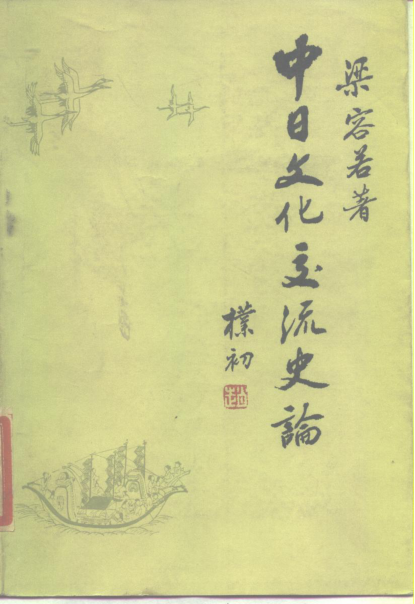 梁容若著
中日文化交流史論
樸初
趙